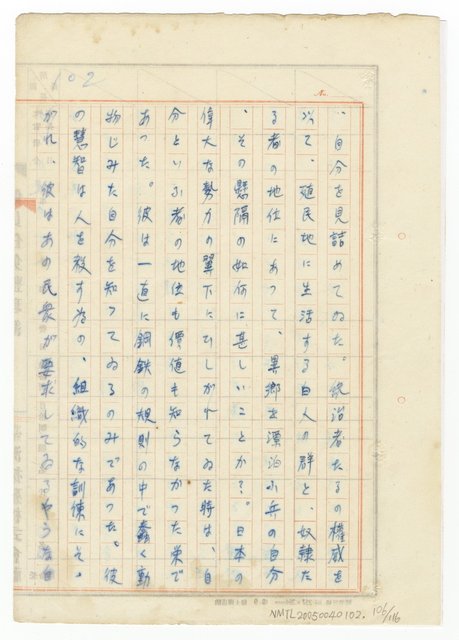 102
、自分を見詰めてゐた。統治者たるの権威を
以て、殖民地に生活する白人の群と、奴隷た
る者の地位にあつて、異郷を漂泊
の自分
、その懸隔の如何に甚しいことか？。日本の
偉大な勢力の翼下にひしがれてゐた時は、自
分といふ者の地位も價値も知らなかつた
で
あつた。彼は一直に鋼鉄の規則の中で蠢く動
物じみた自分を知つてゐるのみであつた。彼
の慧智は人を殺す為の、組織的な訓練にそ、
がれ、彼はあの民衆が要求してゐるやうな自
NMTL20050040102.
106/116